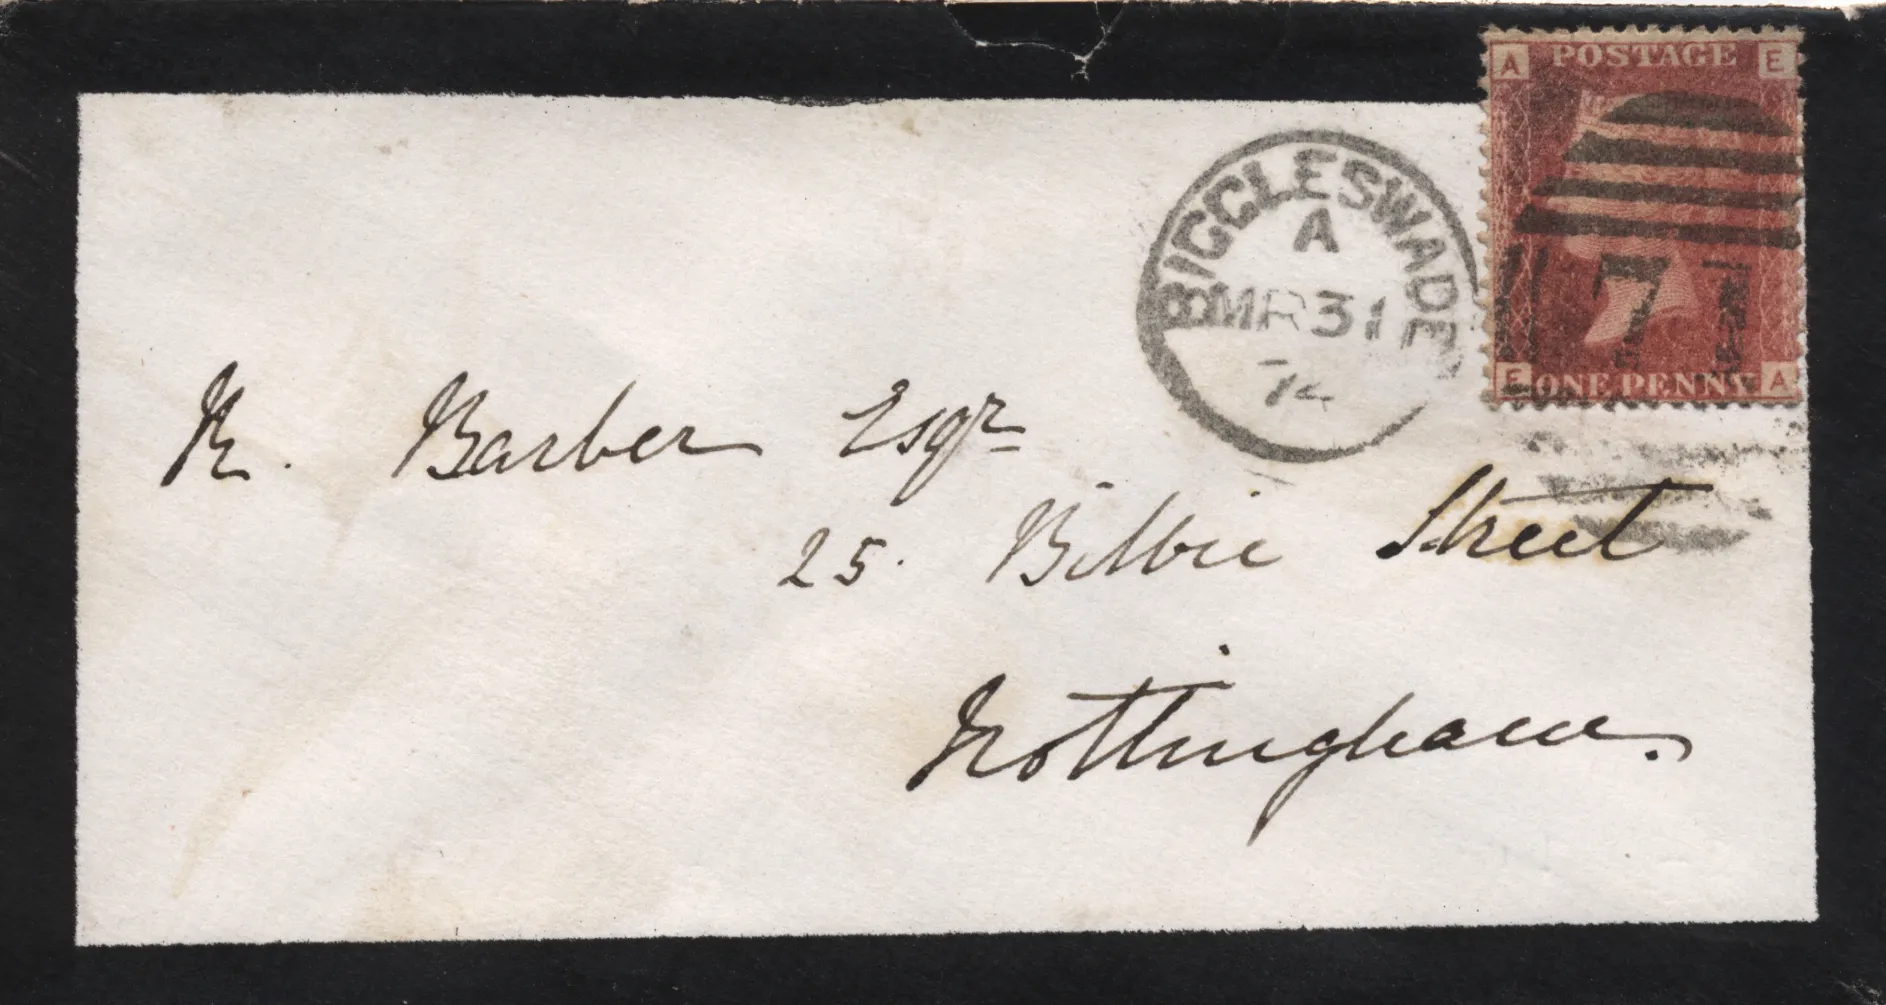 A POSTAGE E
BIGGLESWADE
A
MR 31
74
E ONE PENNY A
R. Barber Esqr
25. Bilbie Street
Nottingham.